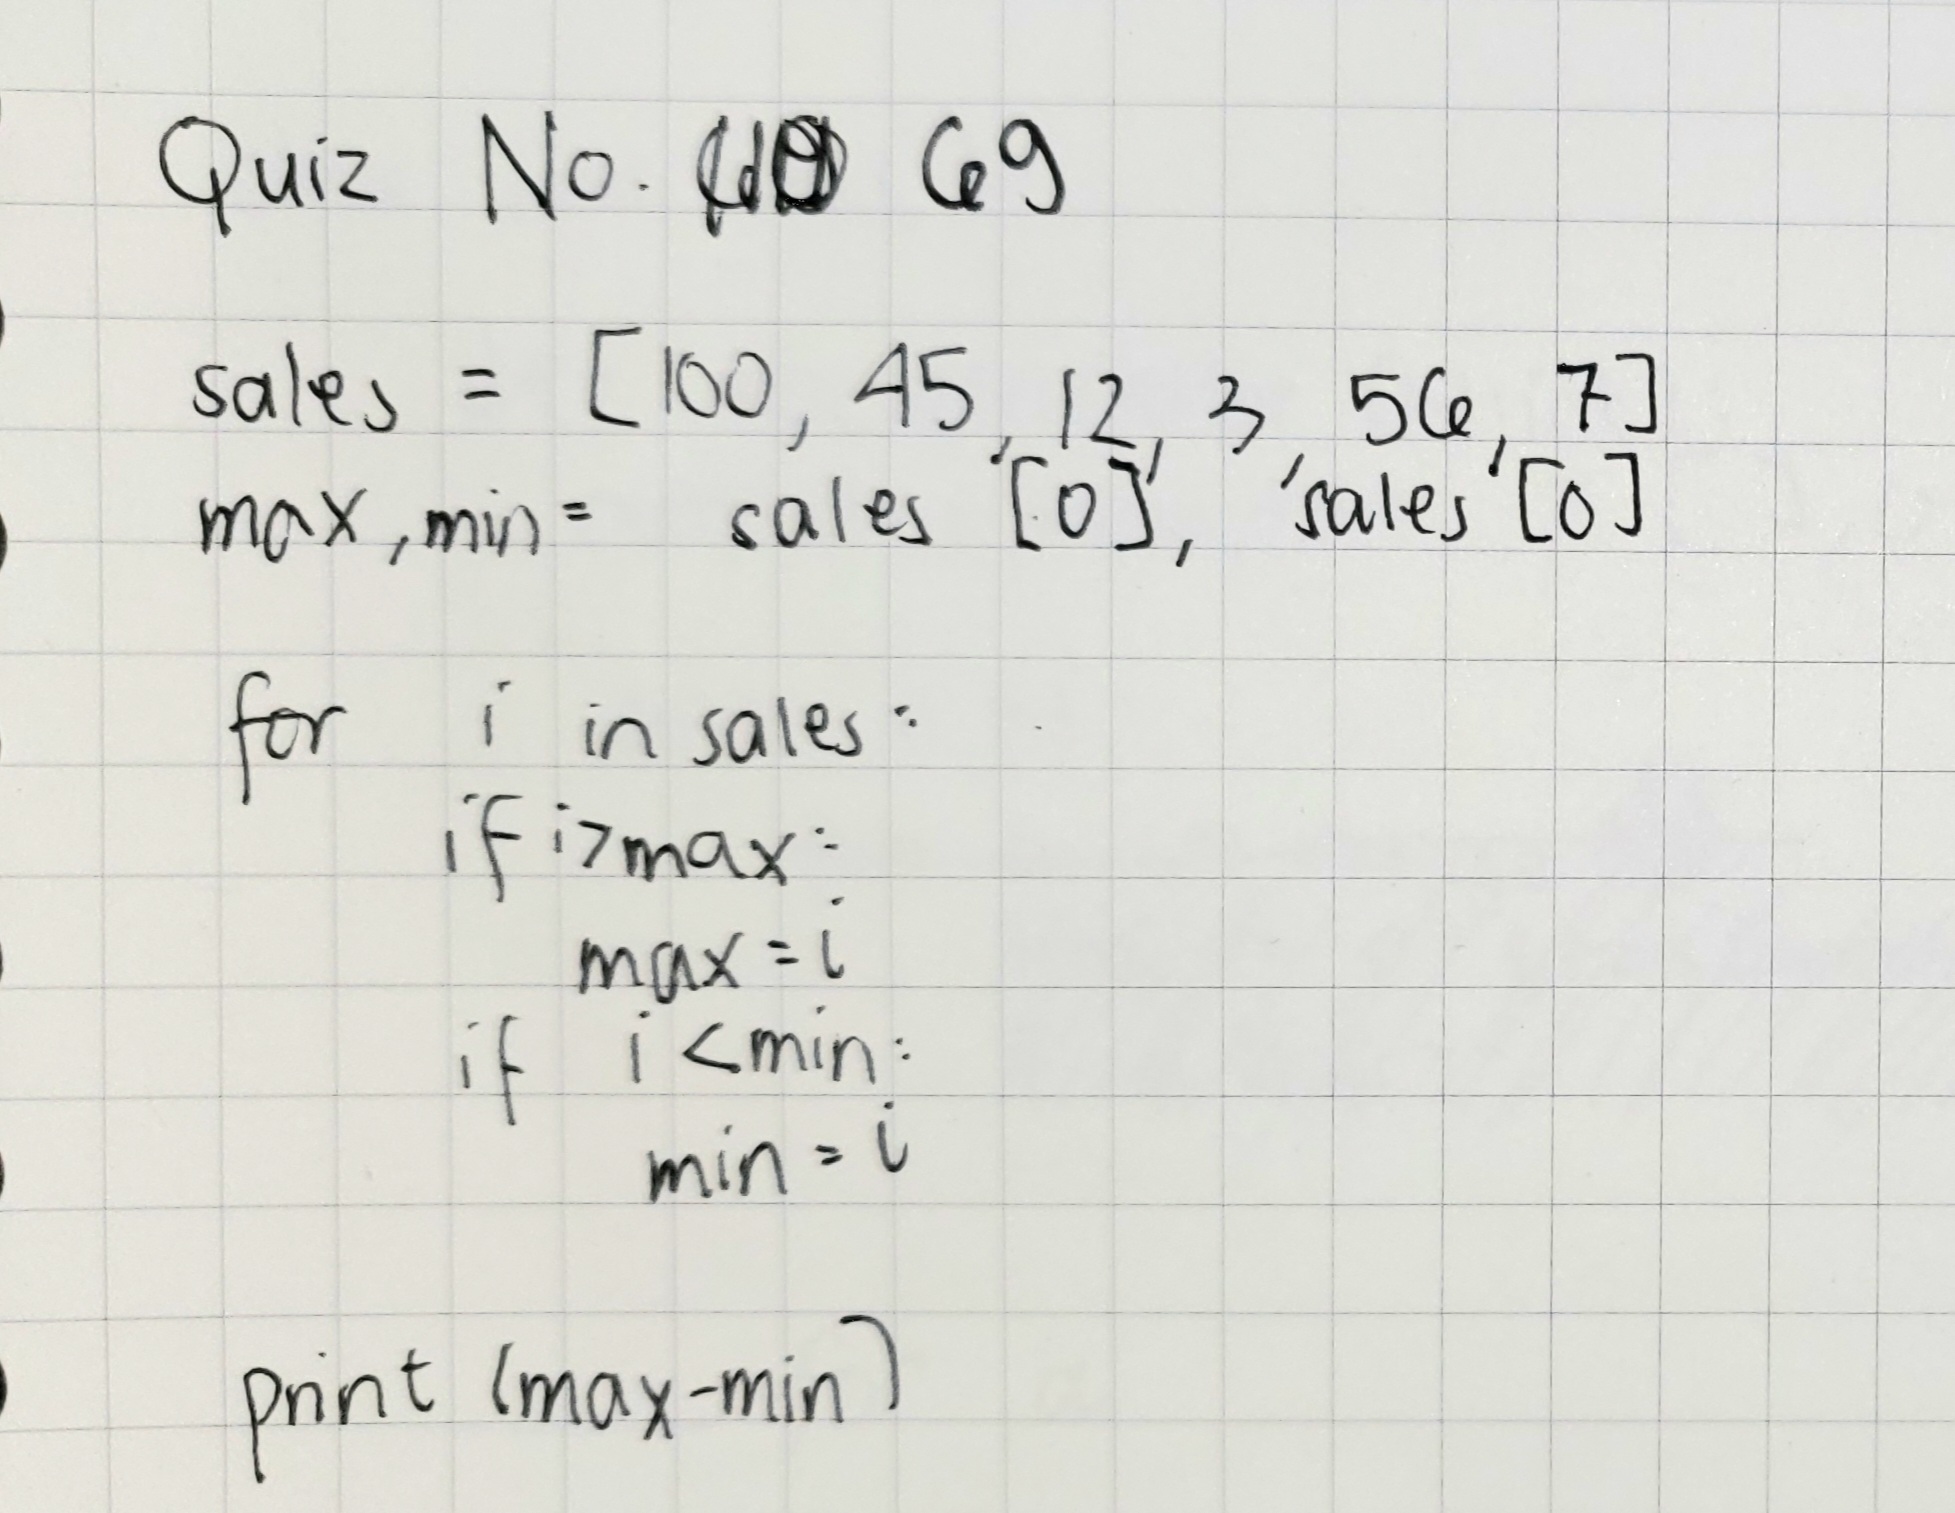 Quiz No. 69
sales = [100, 45, 12, 3, 56, 7]
max, min = sales [0], sales [0]
for i in sales:
if i>max:
max = i
if i <min:
min = i
print (max-min)